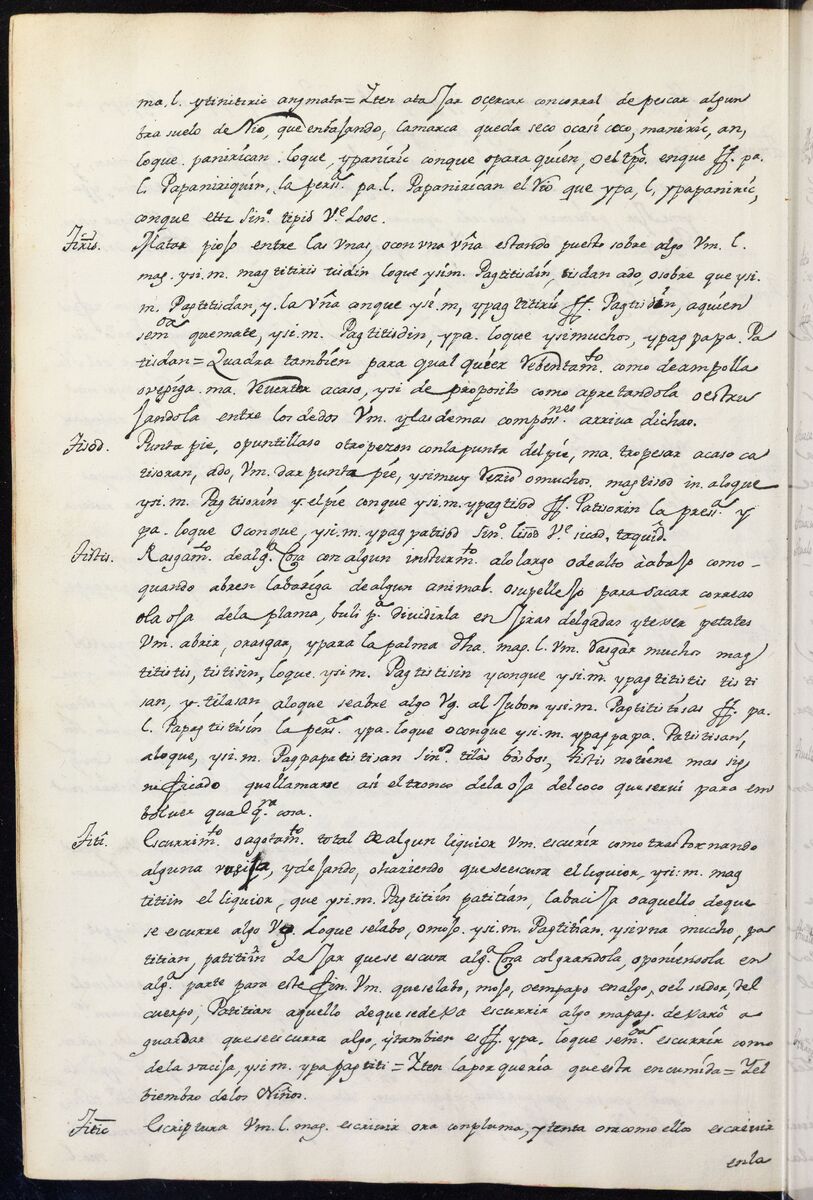 ma. l. ytinitiric angmata = Yten ataJar o çercar con corral de pescar algun
brasuelo de Rio, que entasando, lamarca queda seco ocasi ceco, maniriic, an,
loque. paniríican. loque, ypaníriic conque opara quíen, oel tpo. enque ff. pa.
l. Papaniriquín, la perss.ª pa. l. Papaniríican el Rio que ypa, l, ypapaniriic,
conque etts Sin.º tipid V.e Looc.
Tiris. Matar pioso entre las Vnas, o con vna vña estando puesto sobre algo Vm. l.
mag. ysi. m. magtitiris tisdin loque ysim. Pagtitisdín, tisdan ado, osobre que ysi.
m. Pagtitisdan, y. la vña anque ysi. m, ypagtitiris ff. Pagtisdín, aquíen
sem.ora quemate, ysi. m. Pagtitisdin, ypa. loque ysimuchos, ypagpapa. Pa
tisdan = Quadra también para qual quíer Rebentam.to como deampolla
ovegiga. ma. Reventar acaso, ysi de proposito como apretandola oestru
Jandola entre los dedos Vm. ylas demas compos.nes arriva dichas.
Tisod. Punta pie, opuntillaso otropezon conla punta del pie, ma. tropesar acaso ca
tisoran, ado, Vm. dar punta pie, ysimuy Rezio omuchos. magtisod in. aloque
ysi. m. Pagtisorín y. el píe conque ysi. m. ypagtisod ff. Patisorin la perss.ª y
pa. loque oconque, ysi. m. ypagpatisod Sin.º lisod V.e sicad, taquíd.
Tistis. Rasgam.to dealg.ª Cosa con algun instrum.to alo largo odealto àabaso como -
quando abren labariga dealgun animal. osupelleso para sacar correas
ola osa dela plama, buli p.ª dividirla en Jiras delgadas yteser petates
Vm. abrir, orasgar, ypara la palma dha. mag. l. Vm. Rasgar muchos mag
titistis, tistisin, loque. ysi. m. Pagtistisin yconque ysi. m. ypagtitistis tisti
san, y. tilasan aloque seabre algo Vg. al Jubon ysi. m. Pagtitistisas ff. pa.
l. Papagtistisín la perss.ª ypa. loque oconque ysi. m. ypagpapa. Patistisan,
aloque, ysi. m. Pagpapatistisan Sin.os tilàs bòsbos, tistis notiene mas sig
nificado quellamarse asi el tronco dela osa del coco queservi para em
bolver qualq.ra cosa.
Titi. Escurrim.to oagotam.to total de algun liquíor Vm. escurír como trastornando
alguna vasisa, ydesando, ohaziendo queseescura el liquíor, ysi. m. mag
titiin el liquíor, que ysi. m. Pagtitiin patitian, labacisa oaquello deque
se escurre algo Vg. Loque selabo, omoso. ysi. m. Pagtitian, ysivna mucho, pa
titian, patitiin deJar quese escura alg.ª Cosa colgrandola, oponíensola en
alg.ª parte para este fin. Vm. queselabo, moso, oempapo enalgo, oel sudor, del
cuerpo, Patitian aquello dequesedexa escurrir algo mapag. dexarō a
guardar queseescurra algo, ytambien es ff. ypa. loque sem.oras escurrír como
dela vacisa, ysi. m. ypapagtiti = Yten laporquería que esta encumída = Yel
biembro delos Niños.
Titic Escriptura Vm. l. mag. escrivir ora conpluma, ytenta ora como ellos escrivir
enla